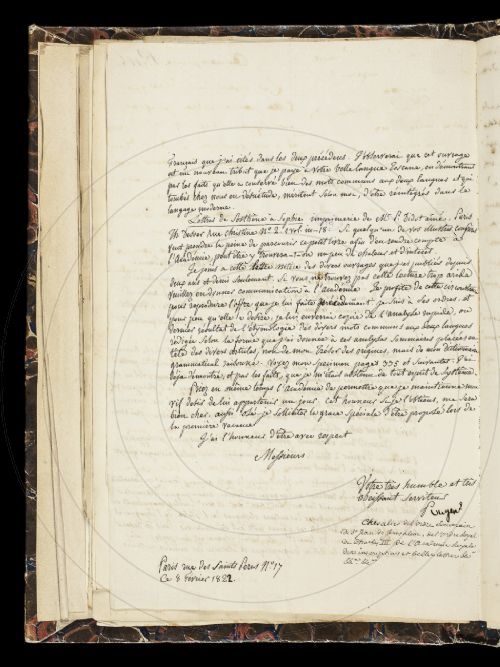 français que j'ai cités dans les deux précédens. J'observerai que cet ouvrage
est un nouveau tribut que je paye à votre belle langue Toscane, en démontrant
par les faits qu'elle a conservé bien des mots communs aux deux langues et qui
tombés chez nous en désuétude, méritent selon moi, d'être réintégrés dans la
langage moderne.
Lettres de Sosthène à Sophie, imprimerie de Mr P. Didot ainé, Paris
Ph. rue christine No 2. 1 vol. in-18. Si quelqu'un de vos illustres confrères
veut prendre la peine de parcourir ce petit livre afin d'en rendre compte à
l'Académie, peut être y trouvera-t-on un peu de chaleur et d'intérêt.
Je joins à cette lettre notice des divers ouvrages que j'ai publiés depuis
deux ans et demi seulement. Si vous ne trouvez pas cette lecture trop aride
veuillez en donner communication à l'Académie. Je profite de cette circonstance
pour reproduire l'offre que je lui faite précédemment je suis à ses ordres, et
pour peu qu'elle le désire, je lui enverrai copie de l'analyse rapide, ou
dernier résultat de l'étymologie des divers mots communs aux deux langues
rédigée selon la forme que j'ai donnée à ces analyses sommaires placées en
tête des divers articles, non de mon Trésor des origines, mais de mon dictionnaire
grammatical raisonné. Voyez mon Specimen pages 335 et suivantes. J'ai
déjà démontré, et par les faits, que je m'étais abstenu de tout esprit de système.
Priez en même temps l'Académie de permettre que je maintienne mon
vif désir de lui appartenir un jour cet honneur si je l'obtiens, me sera
bien cher. aussi je sollicite la grace spéciale d'être proposé lors de
la première vacance.
J'ai l'honneur d'être avec respect
Messieurs
Votre très humble et très
obéissant serviteur
Pougens
chevalier de l'ordre Souverain
de St Jean de Jérusalem, de l'ordre Royal
de Charles III de l'Académie Royale
des inscriptions et belles lettres &c
&c. &c.
Paris rue des Saints Pères No 17
Ce 8 février 1822.